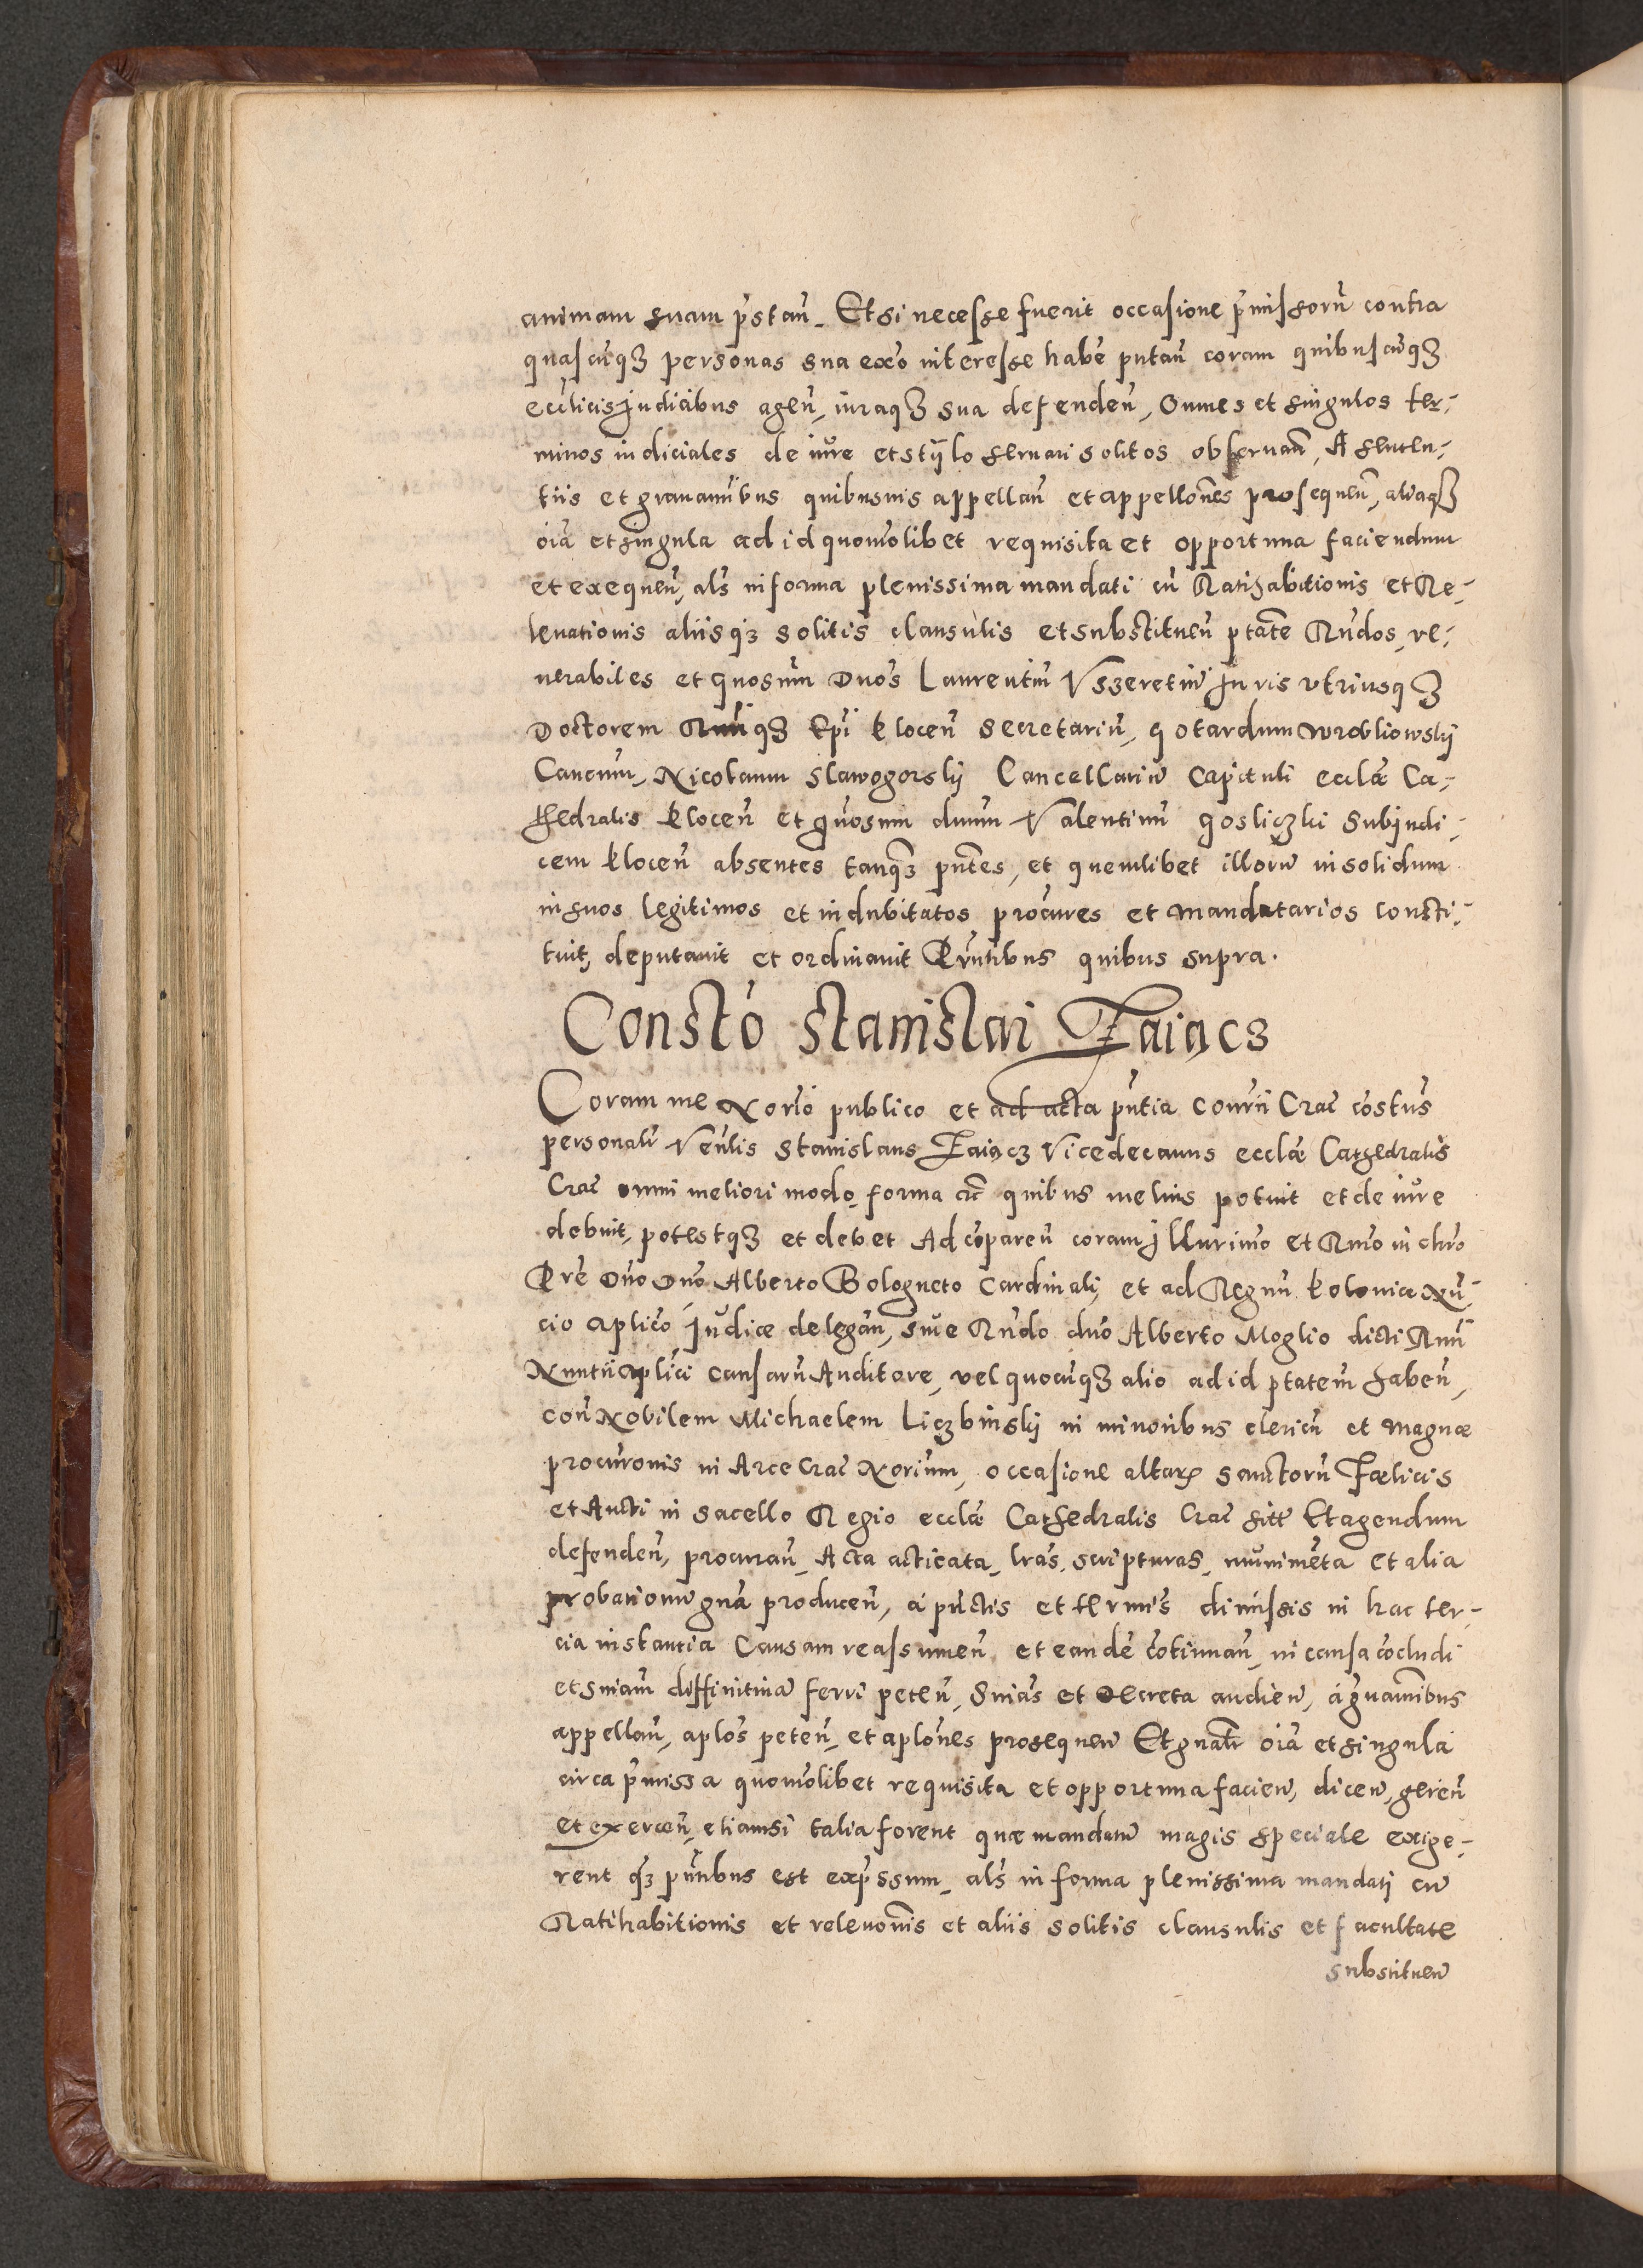 animam suam p̄stan̄. Et si necesse fuerit occasione p̄missorū contra
quascūqȝ personas sua exo interesse habē putan̄ coram quibuscūqȝ
eccliciis Judicibus agen̄, iuraqȝ sua defenden̄, Omnes et singulos ter-
minos iudiciales de iure et stylo seruari solitos obseruan̄, A senten-
tiis et grauam̄ibus quibusuis appellan̄ et appellōnes prosequen̄, aliaqȝ
oīa et singula ad id quomōlibet requisita et opportuna faciendum
et exequen̄, als in forma plenissima mandati cū Ratihabitionis et Re-
leuationis aliisqȝ solitis clausulis et substituen̄ ptāte Rn̄dos, ve-
nerabiles et Gnosum Dn̄os Laurentiū Vszeretiū Juris vtriusqȝ
Doctorem Rmīqȝ Epī Plocen̄ Secretariū, Gotardum Wrobliowskij
Cancrum, Nicolaum Slawogorskij Cancellariū Capituli ecclæ Ca-
thedralis Plocen̄ et Gn̄osum dnum Valentinū Gosliczki Subjudi-
cem Plocen̄ absentes tanqȝ pn̄tes, et quemlibet illorū in solidum
in suos legitimos et indubitatos procures et mandatarios consti-
tuit, deputauit et ordinauit Prn̄tibus quibus supra.
Constō Stanislai Zaiącz
Coram me Norīo publico et ad acta pn̄tia Cour̄ii Crac̄ cōstus
personalr̄ Ven̄lis Stanislaus Zaiącz Vicedecanus ecclæ Cathedralis
Crac̄ omni meliori modo, forma etc̄ quibus melius potuit et de iure
debuit, potestqȝ et debet Ad cōparen̄ coram Jllurimo et Rmo in chro
Prē Dn̄o Dn̄o Alberto Bologneto Cardinali, et ad Regnū Poloniæ Nū-
cio Aplico Judice delegan̄, siue Rn̄do dn̄o Alberto Moglio dicti Rmī
Nuntii aplici causarū Auditore, vel quocūqȝ alio ad id ptatem haben̄,
con̄ Nobilem Michaelem Liczbinskij in minoribus clericū et magnæ
procurōnis in Arce Crac̄ Norium, occasione altaris sanctorū Fœlicis
et Aucti in sacello Regio ecclæ Cathedralis Crac̄ sitī Et agendum
defenden̄, procuran̄, Acta acticata, lrās, scripturas, munimēta et alia
probationū gn̄a producen̄, à pun̄ctis et termīs dimissis in hac ter-
cia instantia Causam reassumen̄ et eandē cōtinuan̄, in causa cōcludi
et sniam diffinitiuā ferri peten̄, Snias et Decreta audien̄, à g̃uam̄ibus
appellan̄, aplōs peten̄, et aplōnes prosequen̄ Et gn̄alr̄ oīa et singula
circa p̄missa quomōlibet requisita et opportuna facien̄, dicen̄, geren̄
et exercen̄, etiamsi talia forent quæ mandatū magis speciale exige-
rent qȝ pn̄tibus est exp̄ssum, als in forma plenissima mandati cū
Ratihabitionis et releuōnis et aliis solitis clausulis et facultate
substituen̄